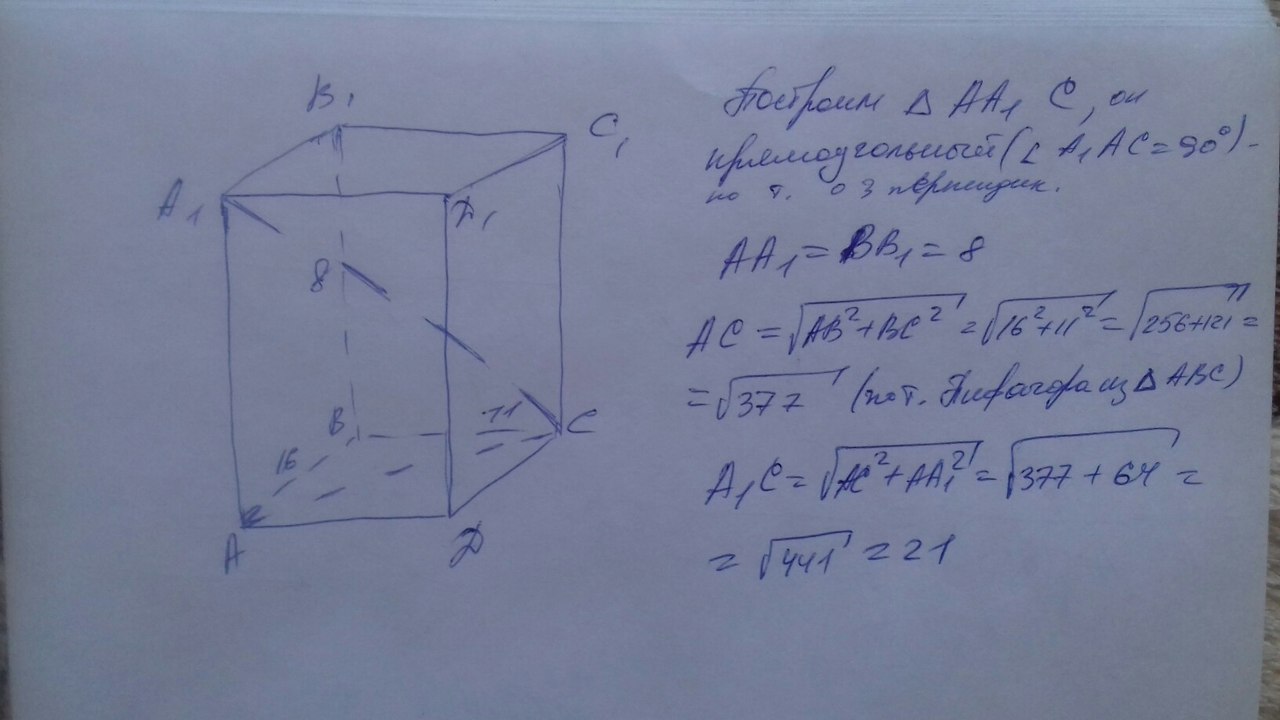 B₁
C₁
A₁
Д₁
8
B
11
C
16
A
Д
Построим Δ AA₁ C, он
прямоугольный (∠ A₁AC = 90°) -
по т. о 3 перпендик.
AA₁ = BB₁ = 8
AC = √(AB² + BC²) = √(16² + 11²) = √(256+121) =
= √377 (по т. Пифагора из Δ ABC)
A₁C = √(AC² + AA₁²) = √(377 + 64) =
= √441 = 21